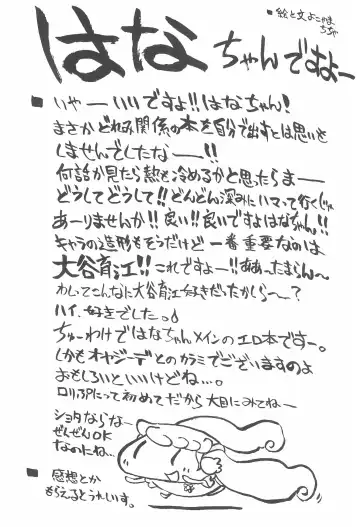 ・絵と文 よこやま
ちちゃ
はなちゃんですよー
■ いやーいいですよ!!はなちゃん!
まさかどれみ関係の本を自分で出すとは思いも
しませんでしたなー!!
何話か見たら熱も冷めるかと思ったらまー
どうしてどうして!!どんどん深みにハマって行くじゃ
あーりませんか!!良い!!良いですよはなちゃん!!
キャラの造形もそうだけど一番重要なのは
大谷育江!!これですよー!!ああーたまらんー
わしってこんなに大谷育江好きだったかしらー?
ハイ、好きでしたっ
ちゅーわけではなちゃんメインのエロ本ですー。
しかもオヤジーデとのカラミでございますのよ
おもしろいといいけどね…。
ロリぷにって初めてだから大目にみてねー
ショタならなー
ぜんぜんOK
なのにね…
■ 感想とか
もらえるとうれしいす。